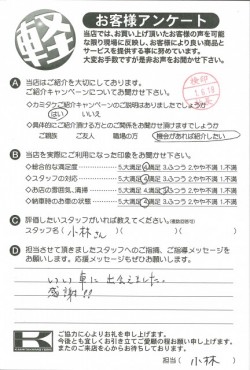 軽
お客様アンケート
当店では、お買い上げ頂いたお客様の声を可能
な限り現場に反映し、お客様により良い商品と
サービスを提供する事に努めています。
大変お手数ですが是非お声をお聞かせ下さい。
A 当店はご紹介を大切にしております。
ご紹介キャンペーンについてお聞かせ下さい。
◇カミタケご紹介キャンペーンの説明はありましたでしょうか
はい いいえ
◇具体的にご紹介頂ける方とのご関係をお聞かせ頂けますでしょうか
ご親族 ご友人 職場の方 機会があれば紹介したい
B 当店を実際にご利用になった印象をお聞かせ下さい。
◇総合的な満足度 5.大満足 4.満足 3.ふつう 2.やや不満 1.不満
◇スタッフの対応 5.大満足 4.満足 3.ふつう 2.やや不満 1.不満
◇お店の雰囲気、清掃 5.大満足 4.満足 3.ふつう 2.やや不満 1.不満
◇納車時のお車の状態 5.大満足 4.満足 3.ふつう 2.やや不満 1.不満
C 評価したいスタッフがいれば教えてください。(複数回答可)
スタッフ名( 小林さん )
D 担当させて頂きましたスタッフへのご指摘、ご指導メッセージを
お願いします。応援メッセージもぜひお願いします。
いい車に出会えました。
感謝!!
K
ご協力に心よりお礼を申し上げます。
今後とも宜しくお引き立てご愛顧の程お願い申し上げます。
またのご来店を心からお待ちしております。
担当( 小林 )